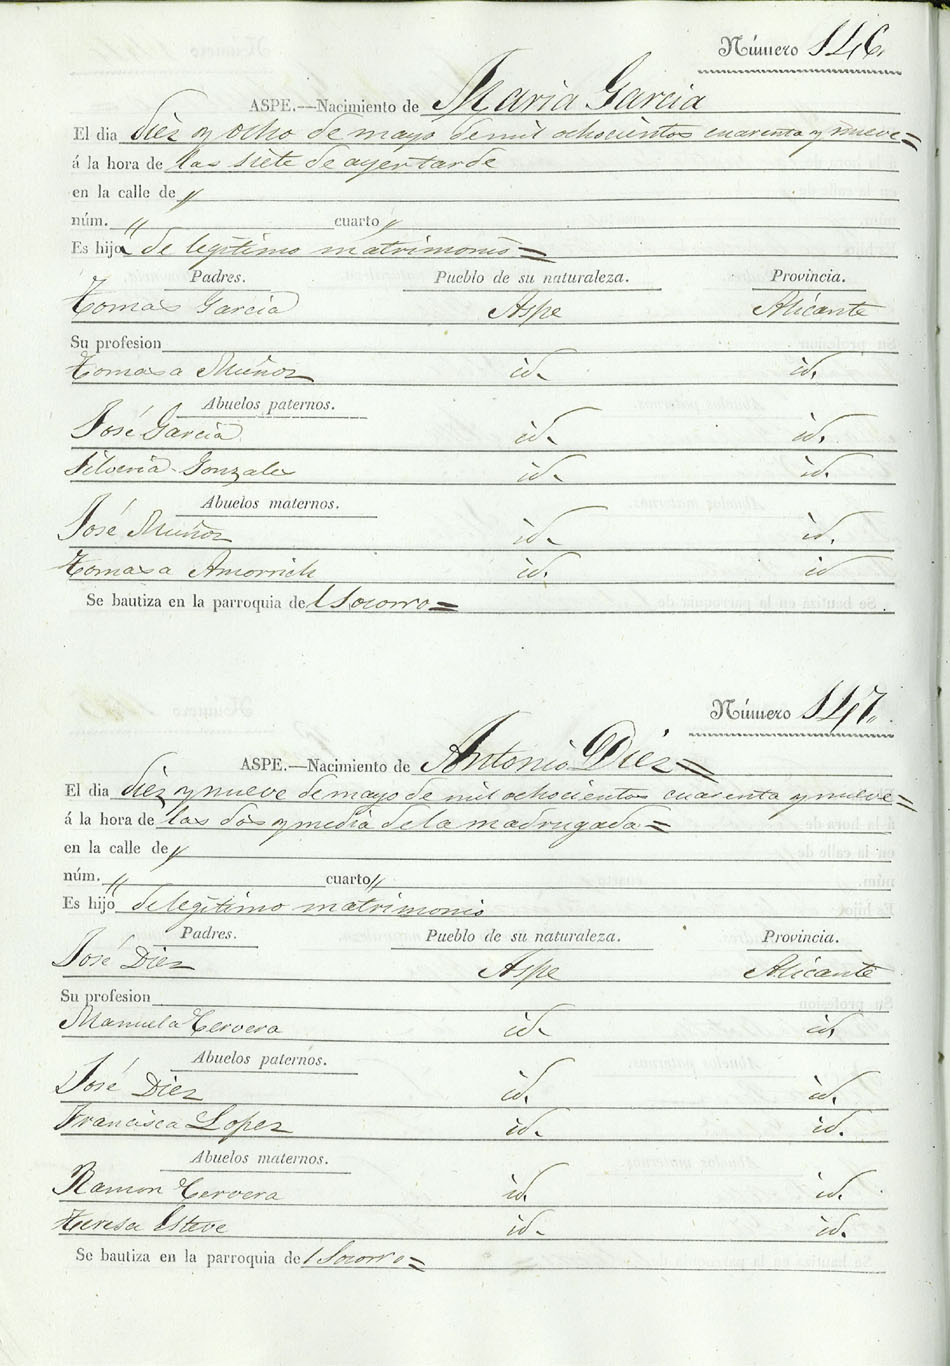 Número 146.
ASPE.—Nacimiento de Maria Garcia
El dia diez y ocho de mayo de mil ochocientos cuarenta y nueve =
á la hora de las siete de ayer tarde
en la calle de "
núm. " cuarto "
Es hija de legitimo matrimonio =
Padres. Pueblo de su naturaleza. Provincia.
Tomas Garcia Aspe Alicante
Su profesion
Tomasa Muñoz id. id.
Abuelos paternos.
José Garcia id. id.
Silveria Gonzalez id. id.
Abuelos maternos.
José Muñoz id. id.
Tomasa Amorrich id. id
Se bautiza en la parroquia del Socorro =
Número 147.
ASPE.—Nacimiento de Antonio Diez =
El dia diez y nueve de mayo de mil ochocientos cuarenta y nueve =
á la hora de las dos y media de la madrugada =
en la calle de "
núm. " cuarto "
Es hijo de legitimo matrimonio
Padres. Pueblo de su naturaleza. Provincia.
José Diez Aspe Alicante
Su profesion
Manuela Cervera id. id.
Abuelos paternos.
José Diez id. id.
Francisca Lopez id. id.
Abuelos maternos.
Ramon Cervera id. id.
Teresa Esteve id. id.
Se bautiza en la parroquia del Socorro =